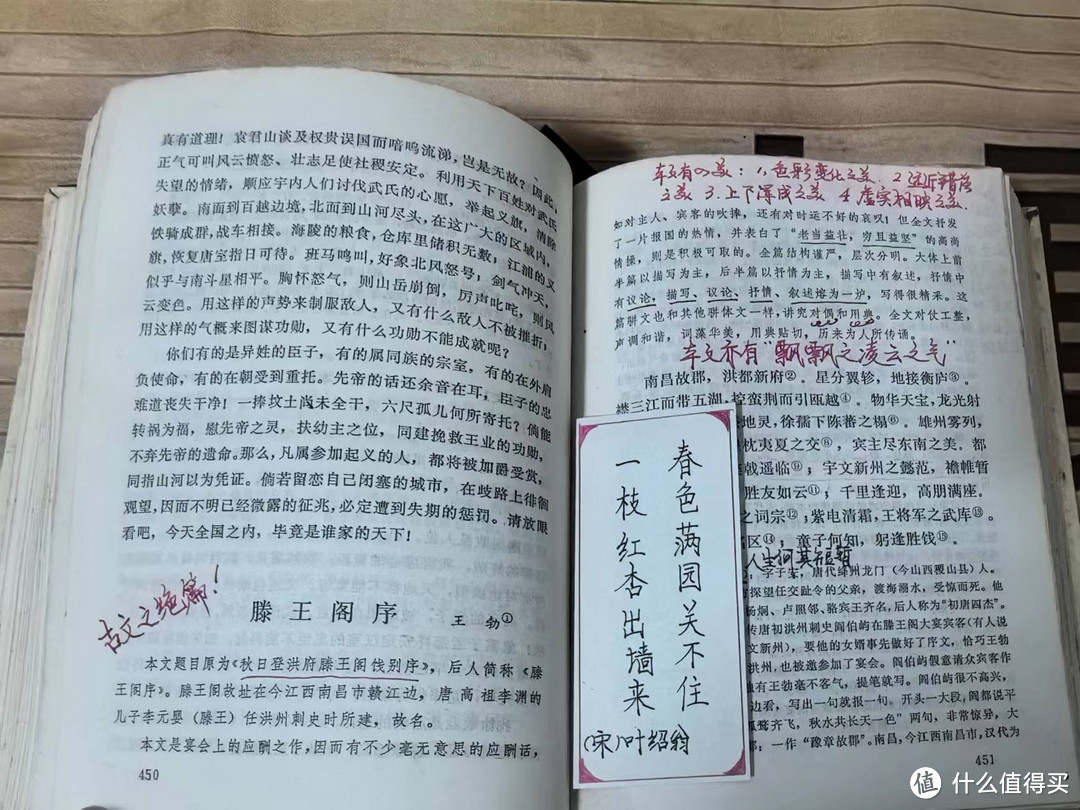 真有道理！袁君山谈及权贵误国而喑呜流涕，岂是无故？因此，
正气可叫风云愤怒、壮志足使社稷安定。利用天下百姓对武氏
失望的情绪，顺应宇内人们讨伐武氏的心愿，举起义旗，清除
妖孽。南面到百越边境，北面到山河尽头，在这广大的区域内，
铁骑成群，战车相接。海陵的粮食，仓库里储积无数；江浦的义
旗，恢复唐室指日可待。班马鸣叫，好象北风怒号；剑气冲天，
似乎与南斗星相平。胸怀怒气，则山岳崩倒，厉声叱咤，则风
云变色。用这样的声势来制服敌人，又有什么敌人不被摧折，
用这样的气概来图谋功勋，又有什么功勋不能成就呢？
你们有的是异姓的臣子，有的属同族的宗室，有的在外肩
负使命，有的在朝受到重托。先帝的话还余音在耳，臣子的忠
难道丧失干净！一捧坟土尚未全干，六尺孤儿何所寄托？倘能
转祸为福，慰先帝之灵，扶幼主之位，同建挽救王业的功勋，
不弃先帝的遗命。那么，凡属参加起义的人，都将被加爵受赏，
同指山河以为凭证。倘若留恋自己闭塞的城市，在歧路上徘徊
观望，因而不明已经微露的征兆，必定遭到失期的惩罚。请放眼
看吧，今天全国之内，毕竟是谁家的天下！
古文之绝篇！
滕王阁序 王勃①
本文题目原为《秋日登洪府滕王阁饯别序》，后人简称《滕
王阁序》。滕王阁故址在今江西南昌市赣江边，唐高祖李渊的
儿子李元婴（滕王）任洪州刺史时所建，故名。
本文是宴会上的应酬之作，因而有不少毫无意思的应酬话，
450
本文有四美：1、色彩变化之美 2、远近错落
之美 3、上下浑成之美 4、虚实相映之美
如对主人、宾客的吹捧，还有对时运不好的哀叹！但全文抒发
了一片报国的热情，并表白了“老当益壮，穷且益坚”的高尚
情操，则是积极可取的。全篇结构谨严，层次分明。大体上前
半篇以描写为主，后半篇以抒情为主，描写中有叙述，抒情中
有议论，描写、议论、抒情、叙述熔为一炉，写得很精采。这
篇骈文也和其他骈体文一样，讲究对偶和用典。全文对仗工整，
声调和谐，词藻华美，用典贴切，历来为人所传诵。
本文亦有“飘飘之凌云之气”
南昌故郡，洪都新府②。星分翼轸，地接衡庐③。
襟三江而带五湖，控蛮荆而引瓯越④。物华天宝，龙光射
地灵，徐孺下陈蕃之榻⑥。雄州雾列，
枕夷夏之交⑧，宾主尽东南之美。都
戟遥临⑩；宇文新州之懿范，襜帷暂
胜友如云⑪；千里逢迎，高朋满座。
之词宗⑫；紫电清霜，王将军之武库⑬。
区⑭；童子何知，躬逢胜饯⑮。
人生何其短暂
字子安，唐代绛州龙门（今山西稷山县）人。
探望任交趾令的父亲，渡海溺水，受惊而死。他
杨炯、卢照邻、骆宾王齐名，后人称为“初唐四杰”。
传唐初洪州刺史阎伯屿在滕王阁大宴宾客（有人说
文新州），要他的女婿事先做好了序文，恰巧王勃
洪州，也被邀参加了宴会。阎伯屿假意请众宾客作
独有王勃毫不客气，提笔就写。阎伯屿很不高兴，
边看，写出一句就报一句。开头一大段，阎都说平
孤鹜齐飞，秋水共长天一色”两句，非常惊异，大
郡：一作“豫章故郡”。南昌，今江西南昌市，汉代为
451
春色满园关不住
一枝红杏出墙来
（宋）叶绍翁
值 什么值得买